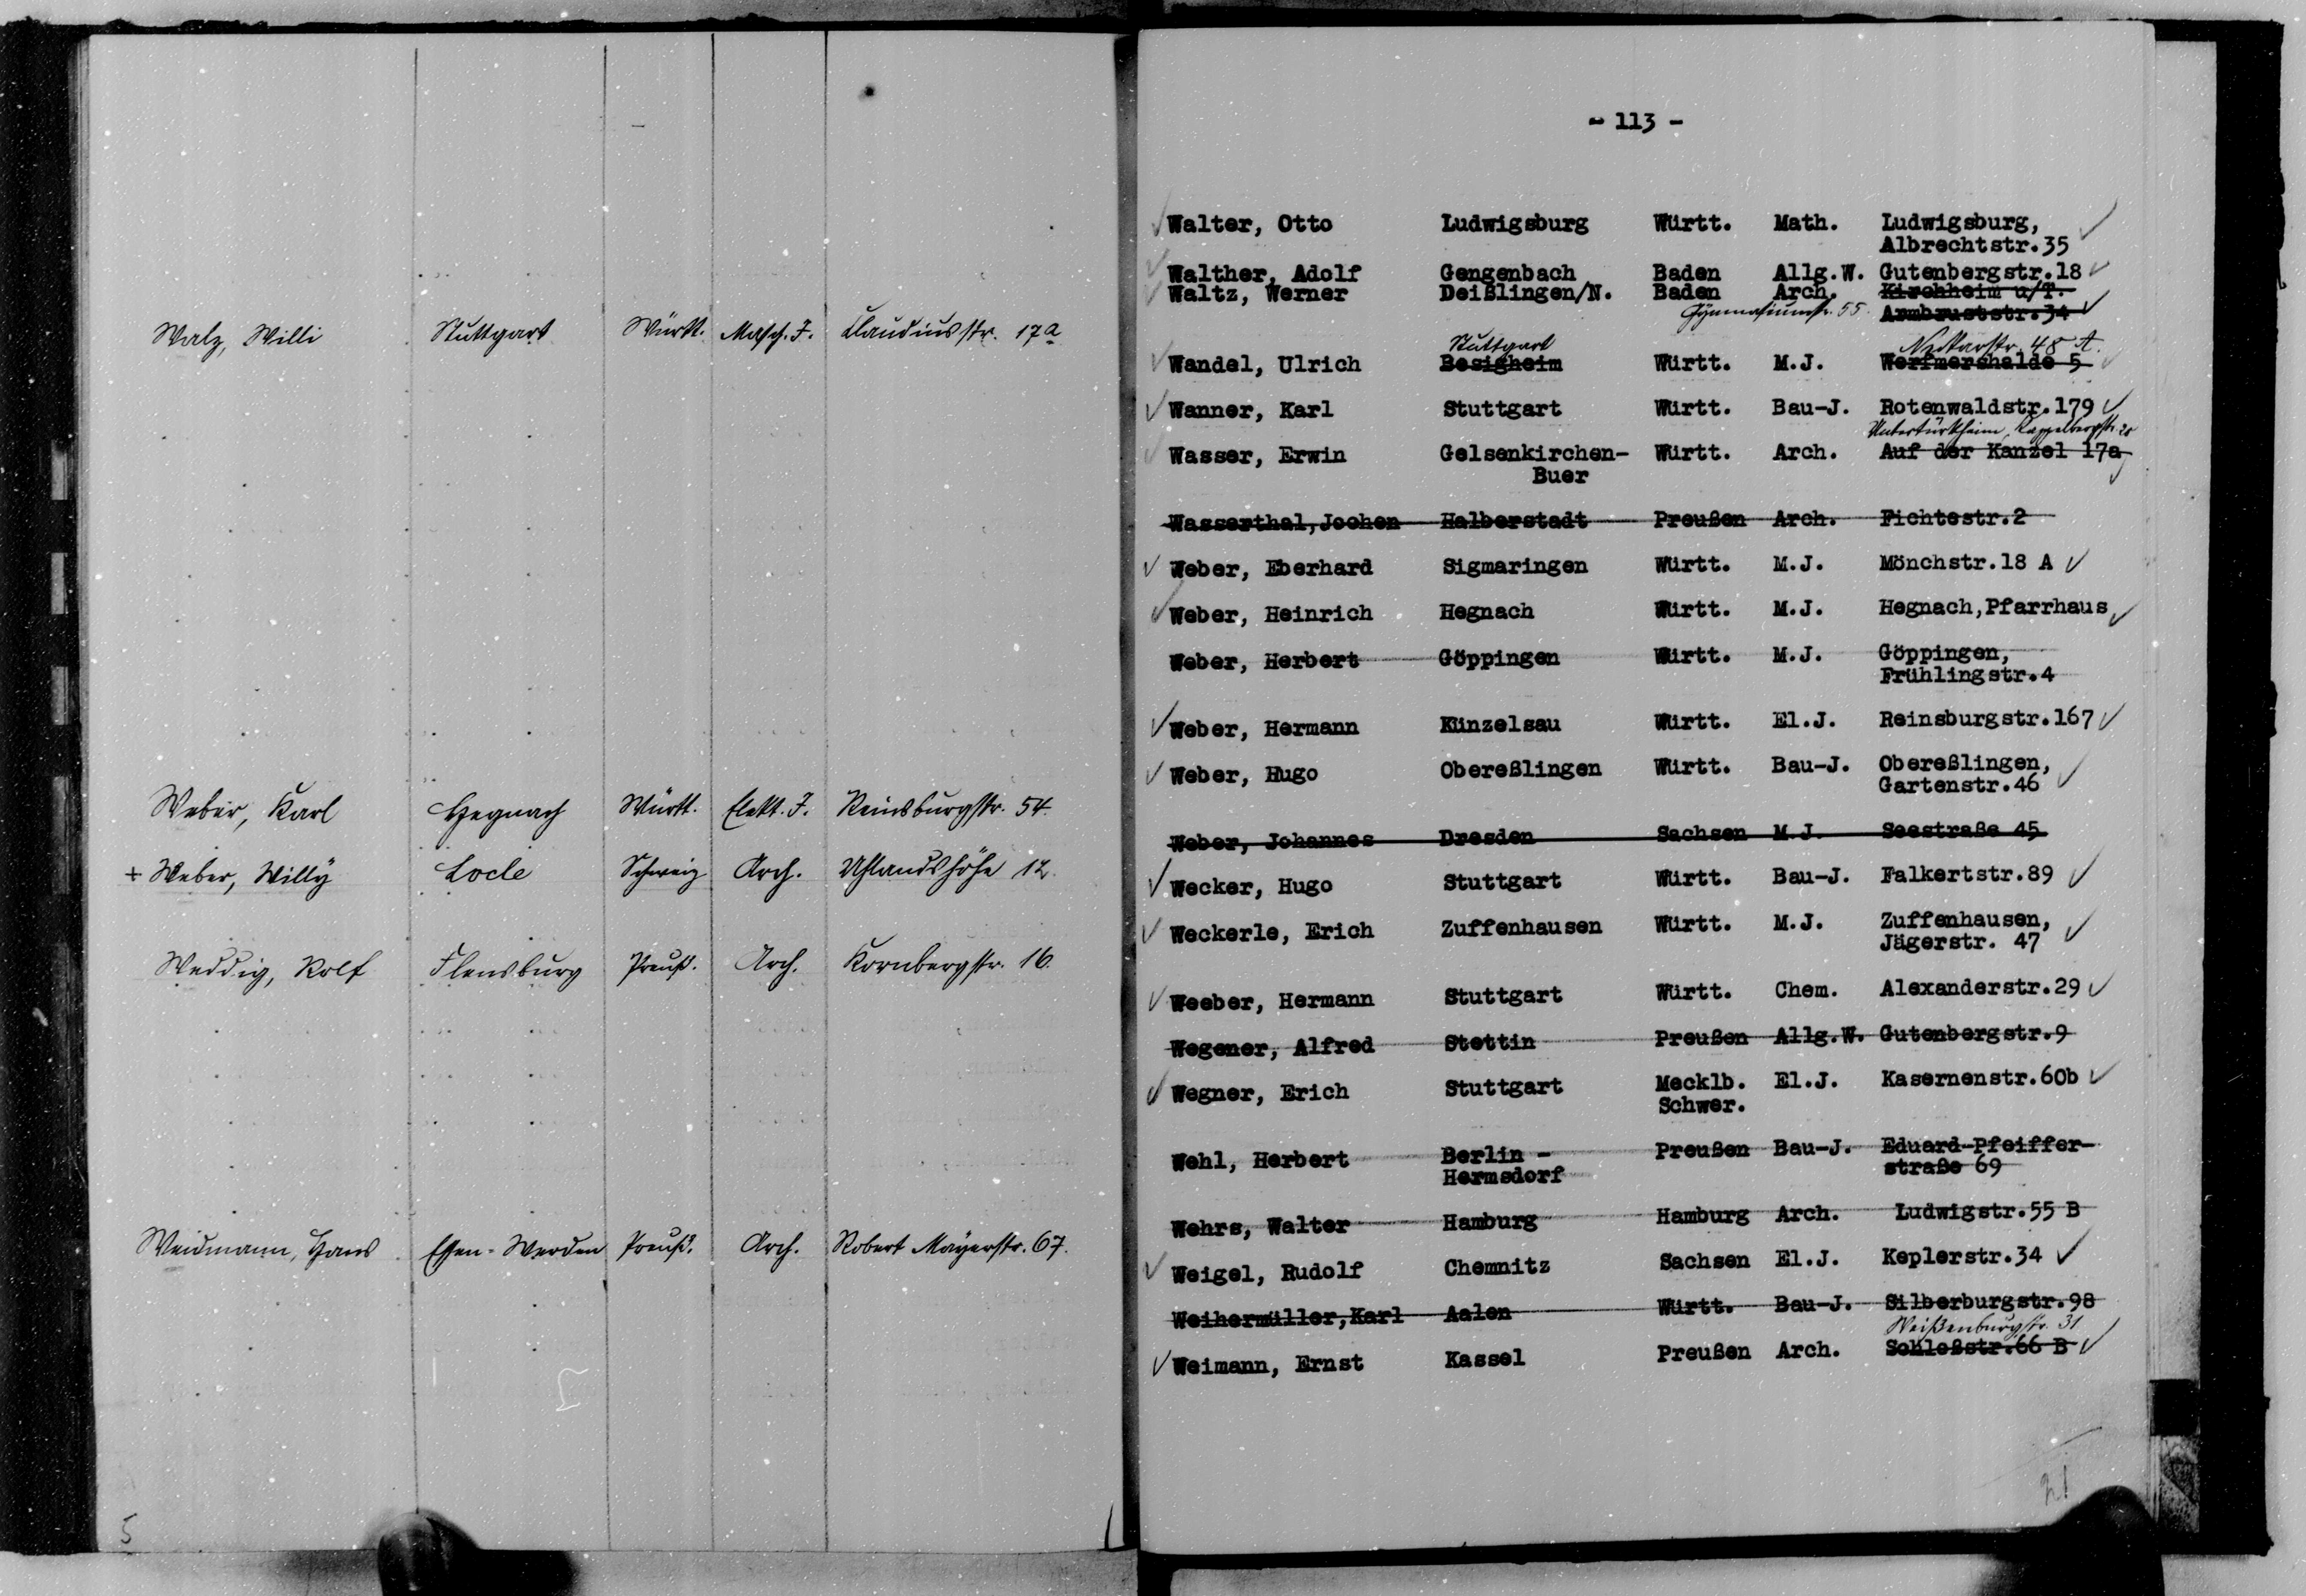 Walz, Willi Stuttgart Württ. Masch. I. Claudiusstr. 17a
Weber, Karl Hegnach Württ. Elekt. I. Reinsburgstr. 54.
+ Weber, Willy Locle Schweiz Arch. Uhlandshöhe 12.
Weddig, Rolf Flensburg Preuß. Arch. Kornbergstr. 16.
Weidmann, Hans Essen-Werden Preuß. Arch. Robert Mayerstr. 67.
5
- 113 -
Walter, Otto Ludwigsburg Württ. Math. Ludwigsburg,
Albrechtstr.35
Walther, Adolf Gengenbach Baden Allg.W. Gutenbergstr.18
Waltz, Werner Deißlingen/N. Baden Arch. Kirchheim u/T.
Gymnasiumstr. 55. Armbruststr.34
Stuttgart Neckarstr. 48 A.
Wandel, Ulrich Besigheim Württ. M.J. Werfmershalde 5
Wanner, Karl Stuttgart Württ. Bau-J. Rotenwaldstr.179
Untertürkheim, Kappelbergstr.
Wasser, Erwin Gelsenkirchen- Württ. Arch. Auf der Kanzel 17a
Buer
Wasserthal,Jochen Halberstadt Preußen Arch. Fichtestr.2
Weber, Eberhard Sigmaringen Württ. M.J. Mönchstr.18 A
Weber, Heinrich Hegnach Württ. M.J. Hegnach,Pfarrhaus
Weber, Herbert Göppingen Württ. M.J. Göppingen,
Frühlingstr.4
Weber, Hermann Künzelsau Württ. El.J. Reinsburgstr.167
Weber, Hugo Obereßlingen Württ. Bau-J. Obereßlingen,
Gartenstr.46
Weber, Johannes Dresden Sachsen M.J. Seestraße 45
Wecker, Hugo Stuttgart Württ. Bau-J. Falkertstr.89
Weckerle, Erich Zuffenhausen Württ. M.J. Zuffenhausen,
Jägerstr. 47
Weeber, Hermann Stuttgart Württ. Chem. Alexanderstr.29
Wegener, Alfred Stettin Preußen Allg.W. Gutenbergstr.9
Wegner, Erich Stuttgart Mecklb. El.J. Kasernenstr.60b
Schwer.
Wehl, Herbert Berlin - Preußen Bau-J. Eduard-Pfeiffer-
Hermsdorf straße 69
Wehrs, Walter Hamburg Hamburg Arch. Ludwigstr.55 B
Weigel, Rudolf Chemnitz Sachsen El.J. Keplerstr.34
Weihermüller,Karl Aalen Württ. Bau-J. Silberburgstr.98
Weißenburgstr. 31
Weimann, Ernst Kassel Preußen Arch. Schloßstr.66 B
21